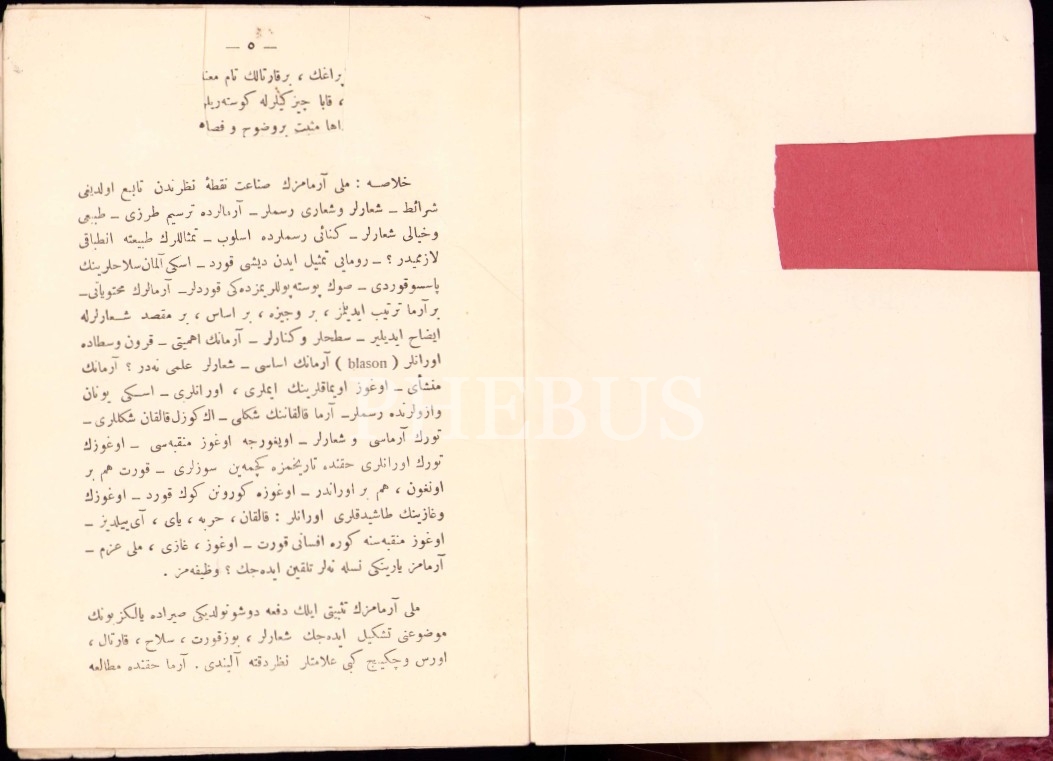 — ٥ —
براغك ، برقارتالك تام معنـ
، قابا چيزكيلرله كوستەريلـ
داها مثبت بروضوح و فصاه
خلاصه : ملى آرمامزك صناعت نقطۀ نظرندن تابع اولديغى
شرائط ــ شعارلر وشعارى رسملر ــ آرمالرده ترسيم طرزى ــ طبيعى
وخيالى شعارلر ــ كنائى رسملرده اسلوب ــ تمثاللرك طبيعته انطباقى
لازميدر ؟ ــ رومايى تمثيل ايدن ديشى قورد ــ اسكى آلمان سلاحلرينك
پاسسوقوردى ــ صوك پوسته پوللريمزده كى قوردلر ــ آرمالرك محتوياتى ــ
بر آرما ترتيب ايديلنجه ، بر وجيزه ، بر اساس ، بر مقصد شعارلرله
ايضاح ايديلير ــ سطحلر وكنارلر ــ آرمانك اهميتى ــ قرون وسطاده
اورانلر ( blason ) آرمانك اساسى ــ شعارلر علمى نه در ؟ آرمانك
منشأى ــ اوغوز اويماقلرينك ايملرى ، اورانلرى ــ اسكى يونان
وازولرنده رسملر ــ آرما قالقاننك شكلى ــ اك كوزل قالقان شكللرى ــ
تورك آرماسى و شعارلر ــ اويغورجه اوغوز منقبه سى ــ اوغوزك
تورك اورانلرى حقنده تاريخمزه كچمه ين سوزلرى ــ قورت هم بر
اونغون ، هم بر اوراندر ــ اوغوزه كورونن كوك قورد ــ اوغوزك
وغازينك طاشيدقلرى اورانلر : قالقان ، حربه ، ياى ، آى ييلديز ــ
اوغوز منقبه سنه كوره افسانى قورت ــ اوغوز ، غازى ، ملى عزم ــ
آرمامز يارينكى نسله نه لر تلقين ايده جك ؟ وظيفه مز .
ملى آرمامزك تثبيتى ايلك دفعه دوشونولديكى صيراده يالكز بونك
موضوعنى تشكيل ايده جك شعارلر ، بوزقورت ، سلاح ، قارتال ،
اورس وچكيچ كبى علامتلر نظر دقته آليندى . آرما حقنده مطالعه
PHEBUS